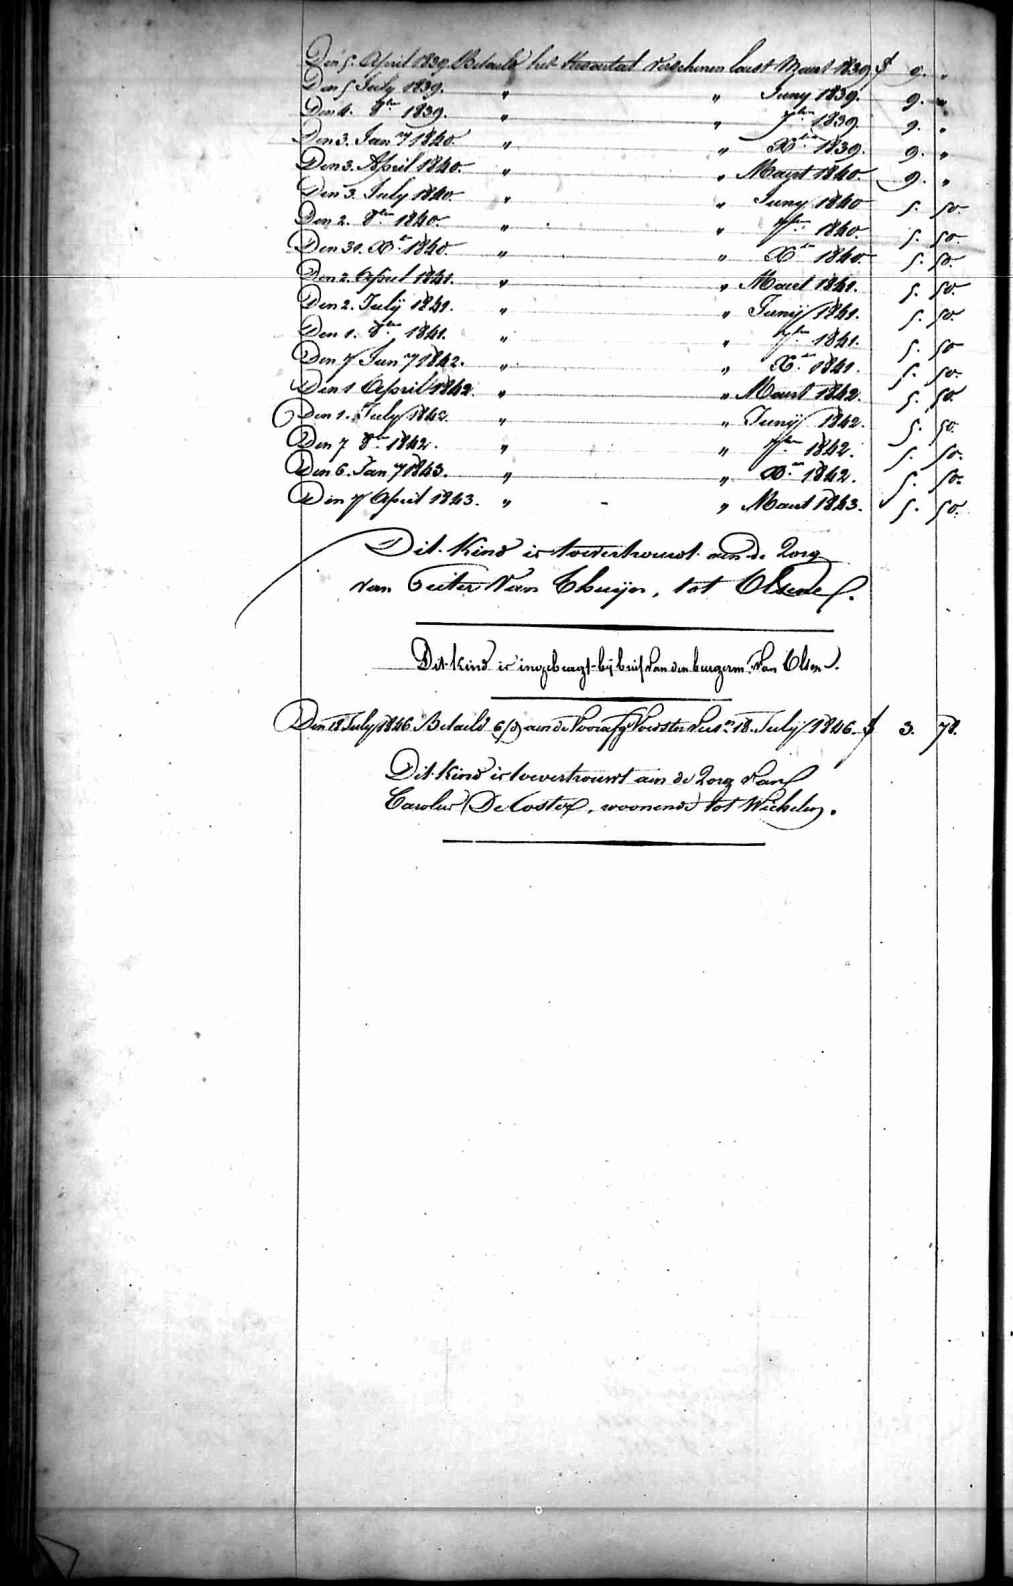 Den 5. April 1839. Betaeld het kwartael verschenen laest Maert 1839. f 9. "
Den 5 July 1839. " " Juny 1839. 9. "
Den 4. 8ber 1839. " " 7ber 1839. 9. "
Den 3. Jan 7 1840. " " Xber 1839. 9. "
Den 3. April 1840. " " Maert 1840. 9. "
Den 3. July 1840. " " Juny 1840 5. 50.
Den 2. 8ber 1840. " " 7ber 1840. 5. 50.
Den 30. Xber 1840. " " Xber 1840. 5. 50.
Den 2. April 1841. " " Maert 1841. 5. 50.
Den 2. Julij 1841. " " Junij 1841. 5. 50.
Den 1. 8ber 1841. " " 7ber 1841. 5. 50
Den 7 Jan 7 1842. " " Xber 1841. 5. 50.
Den 1 April 1842. " " Maert 1842. 5. 50.
Den 1. July 1842. " " Junij 1842. 5. 50.
Den 7 8ber 1842. " " 7ber 1842. 5. 50.
Den 6. Jan 7 1843. " " Xber 1842. 5. 50.
Den 7 April 1843. " - " Maert 1843. 5. 50.
Dit Kind is toevertrouwt aen de Zorg
van Peiter Van Thuijn, tot Olsene.
Dit Kind is ingebragt bij brief van den burgerm. van Olsen.
Den 18 July 1846 Betaeld aen de Voorafg Voedster 18. July 1846. f 3. 78.
Dit Kind is toevertrouwt aen de Zorg van
Carolus De Coster, woonende tot Wichelen.